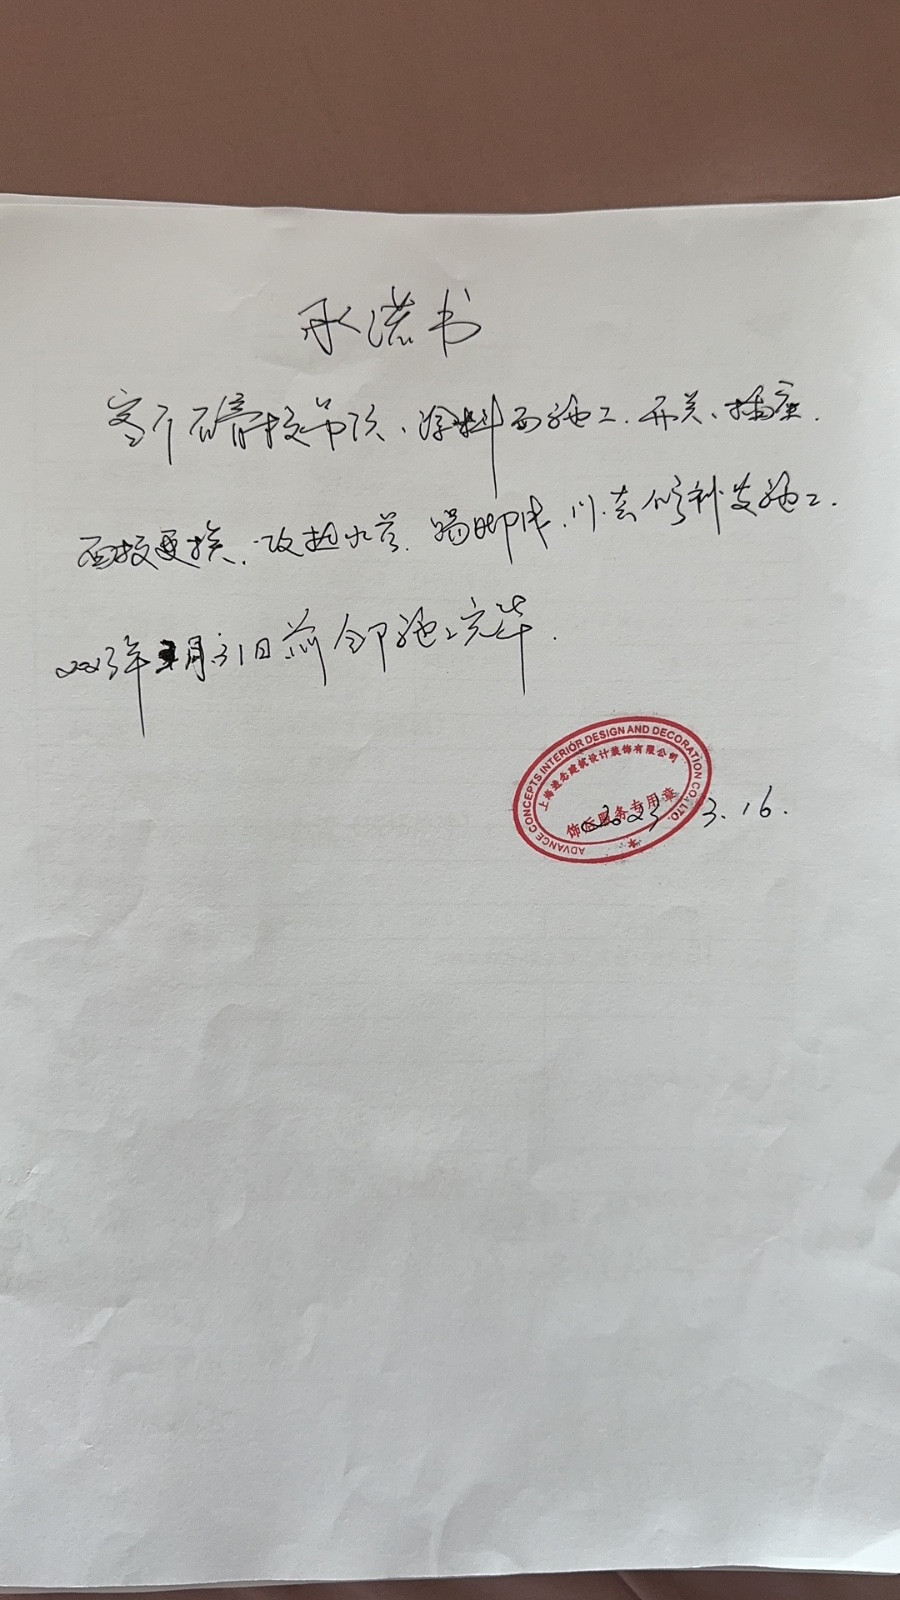 承诺书
客厅石膏板吊顶、涂料面施工、开关、插座、
面板更换、改热水器、踢脚线、修补等施工、
2023年3月31日前全部施工完毕.
ADVANCE CONCEPTS INTERIOR DESIGN AND DECORATION CO.,LTD.
上海进念建筑设计装饰有限公司
服务专用章
2023 3.16.